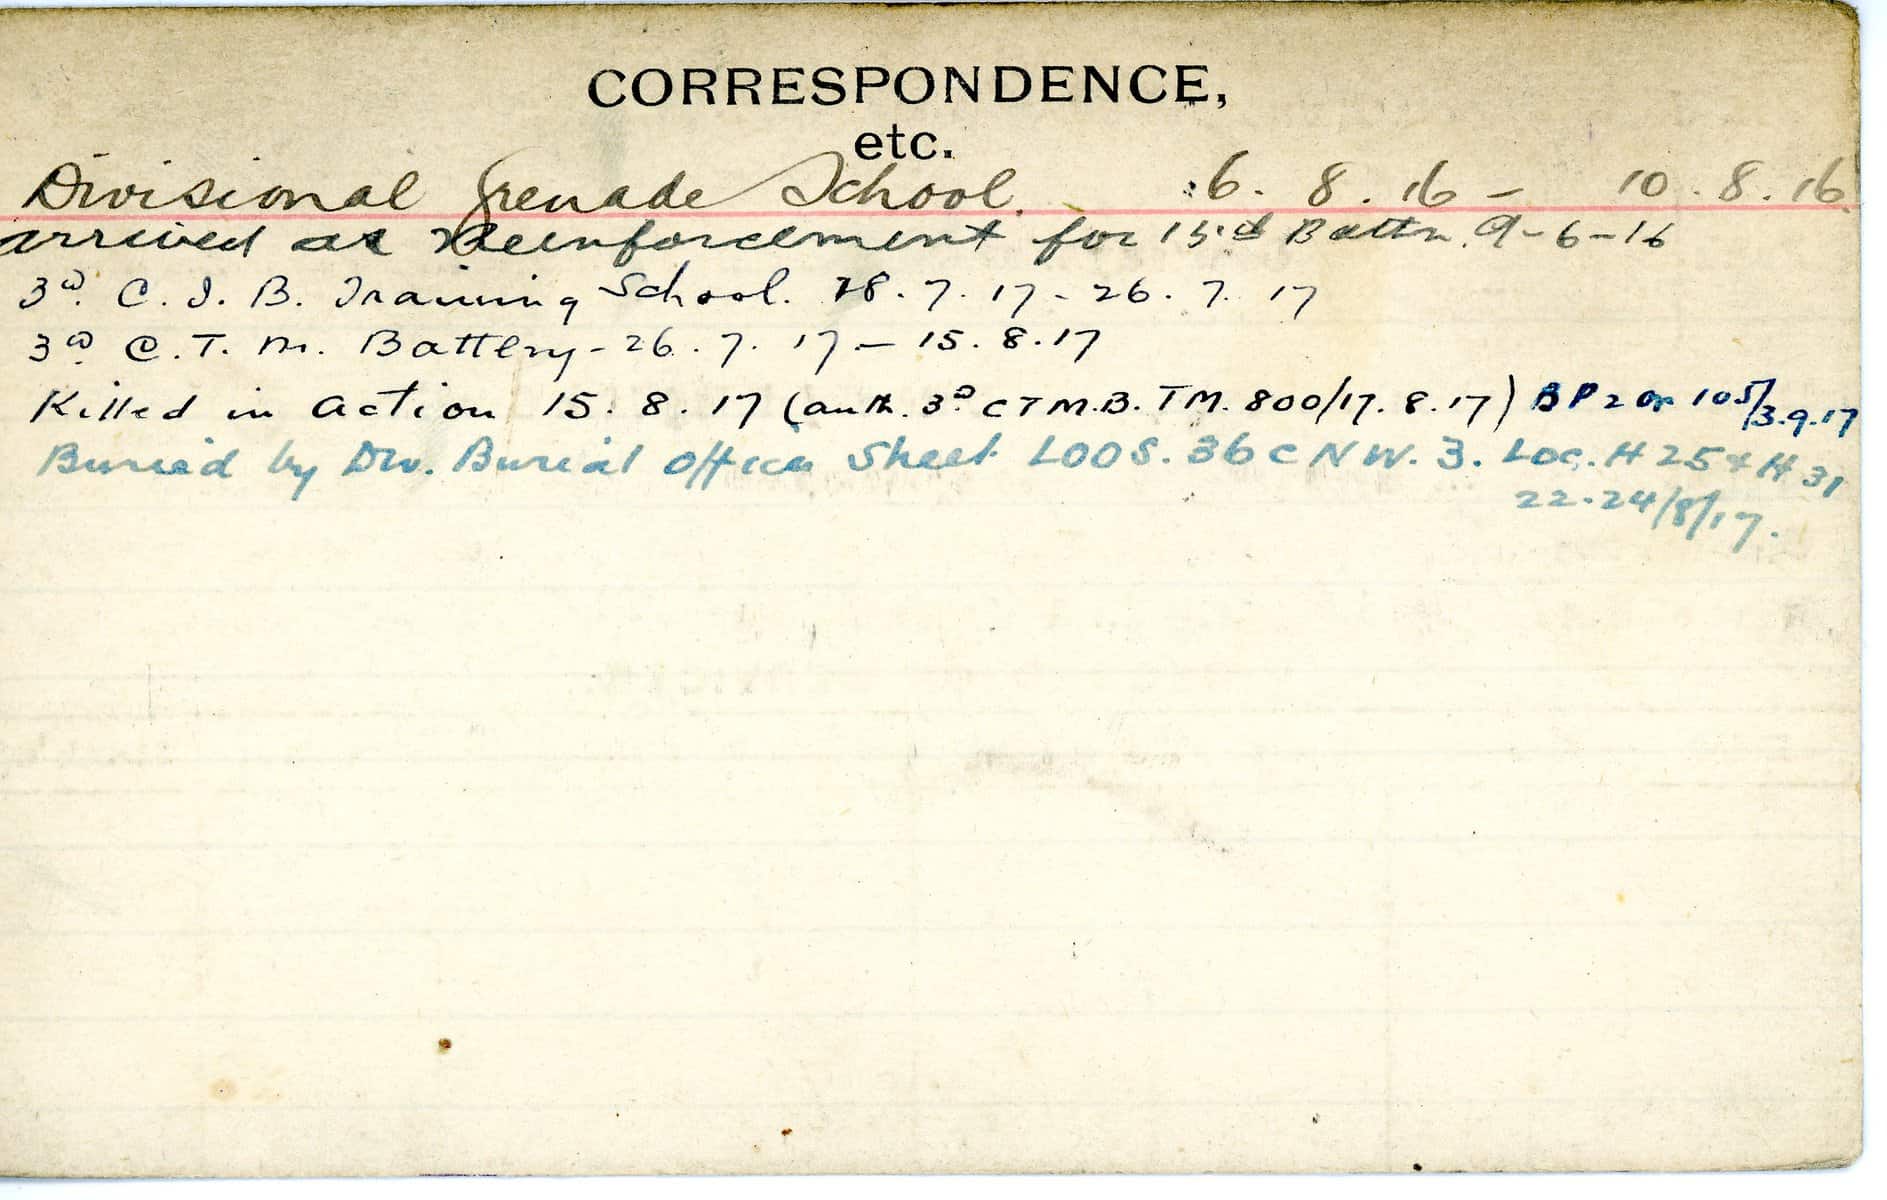 CORRESPONDENCE,
etc.
Divisional Grenade School. 6.8.16 - 10.8.16
arrived as Reinforcement for 15th Battn. 9-6-16
3rd. C. I. B. Training School. 18.7.17 - 26.7.17
3rd. C. T. M. Battery - 26.7.17 - 15.8.17
Killed in action 15.8.17 (auth. 3rd C T M.B. T M. 800/17.8.17) B P 2 or 105/3.9.17
Buried by Div. Burial Officer Sheet LOOS. 36 C N W. 3. Loc. H 25 & H 31
22-24/8/17.